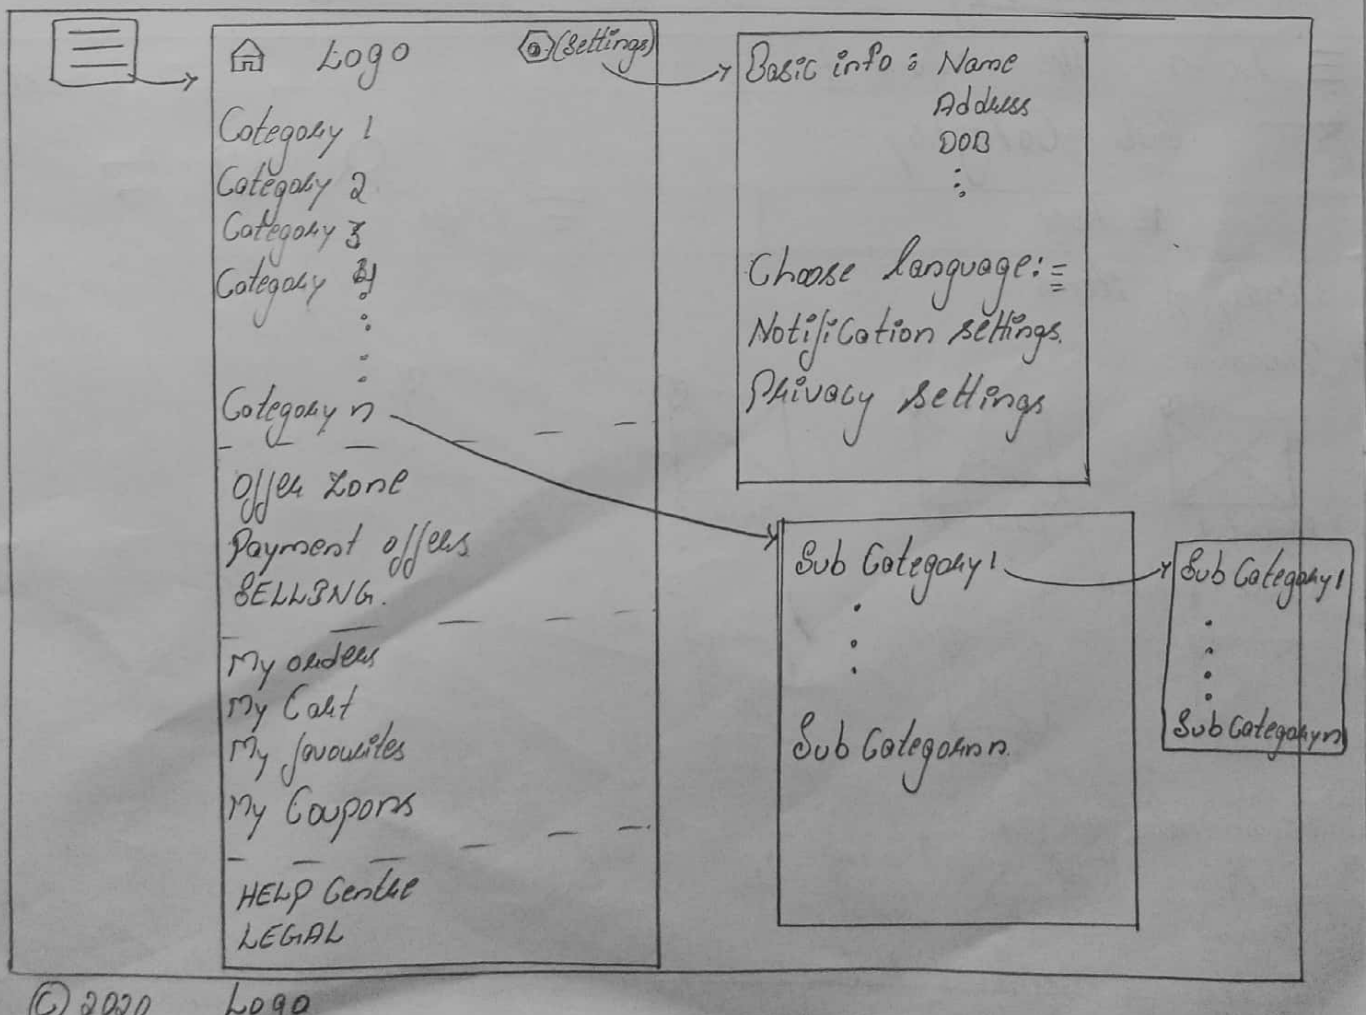 Logo (Settings)
Category 1
Category 2
Category 3
Category 4
Category n
Offer Zone
Payment offers
SELLING.
My orders
My Cart
My favourites
My Coupons
HELP Centre
LEGAL
Basic info : Name
Address
DOB
Choose language:
Notification settings.
Privacy settings
Sub Category 1
Sub Categornn
Sub Category 1
Sub Category n
© 2020 Logo